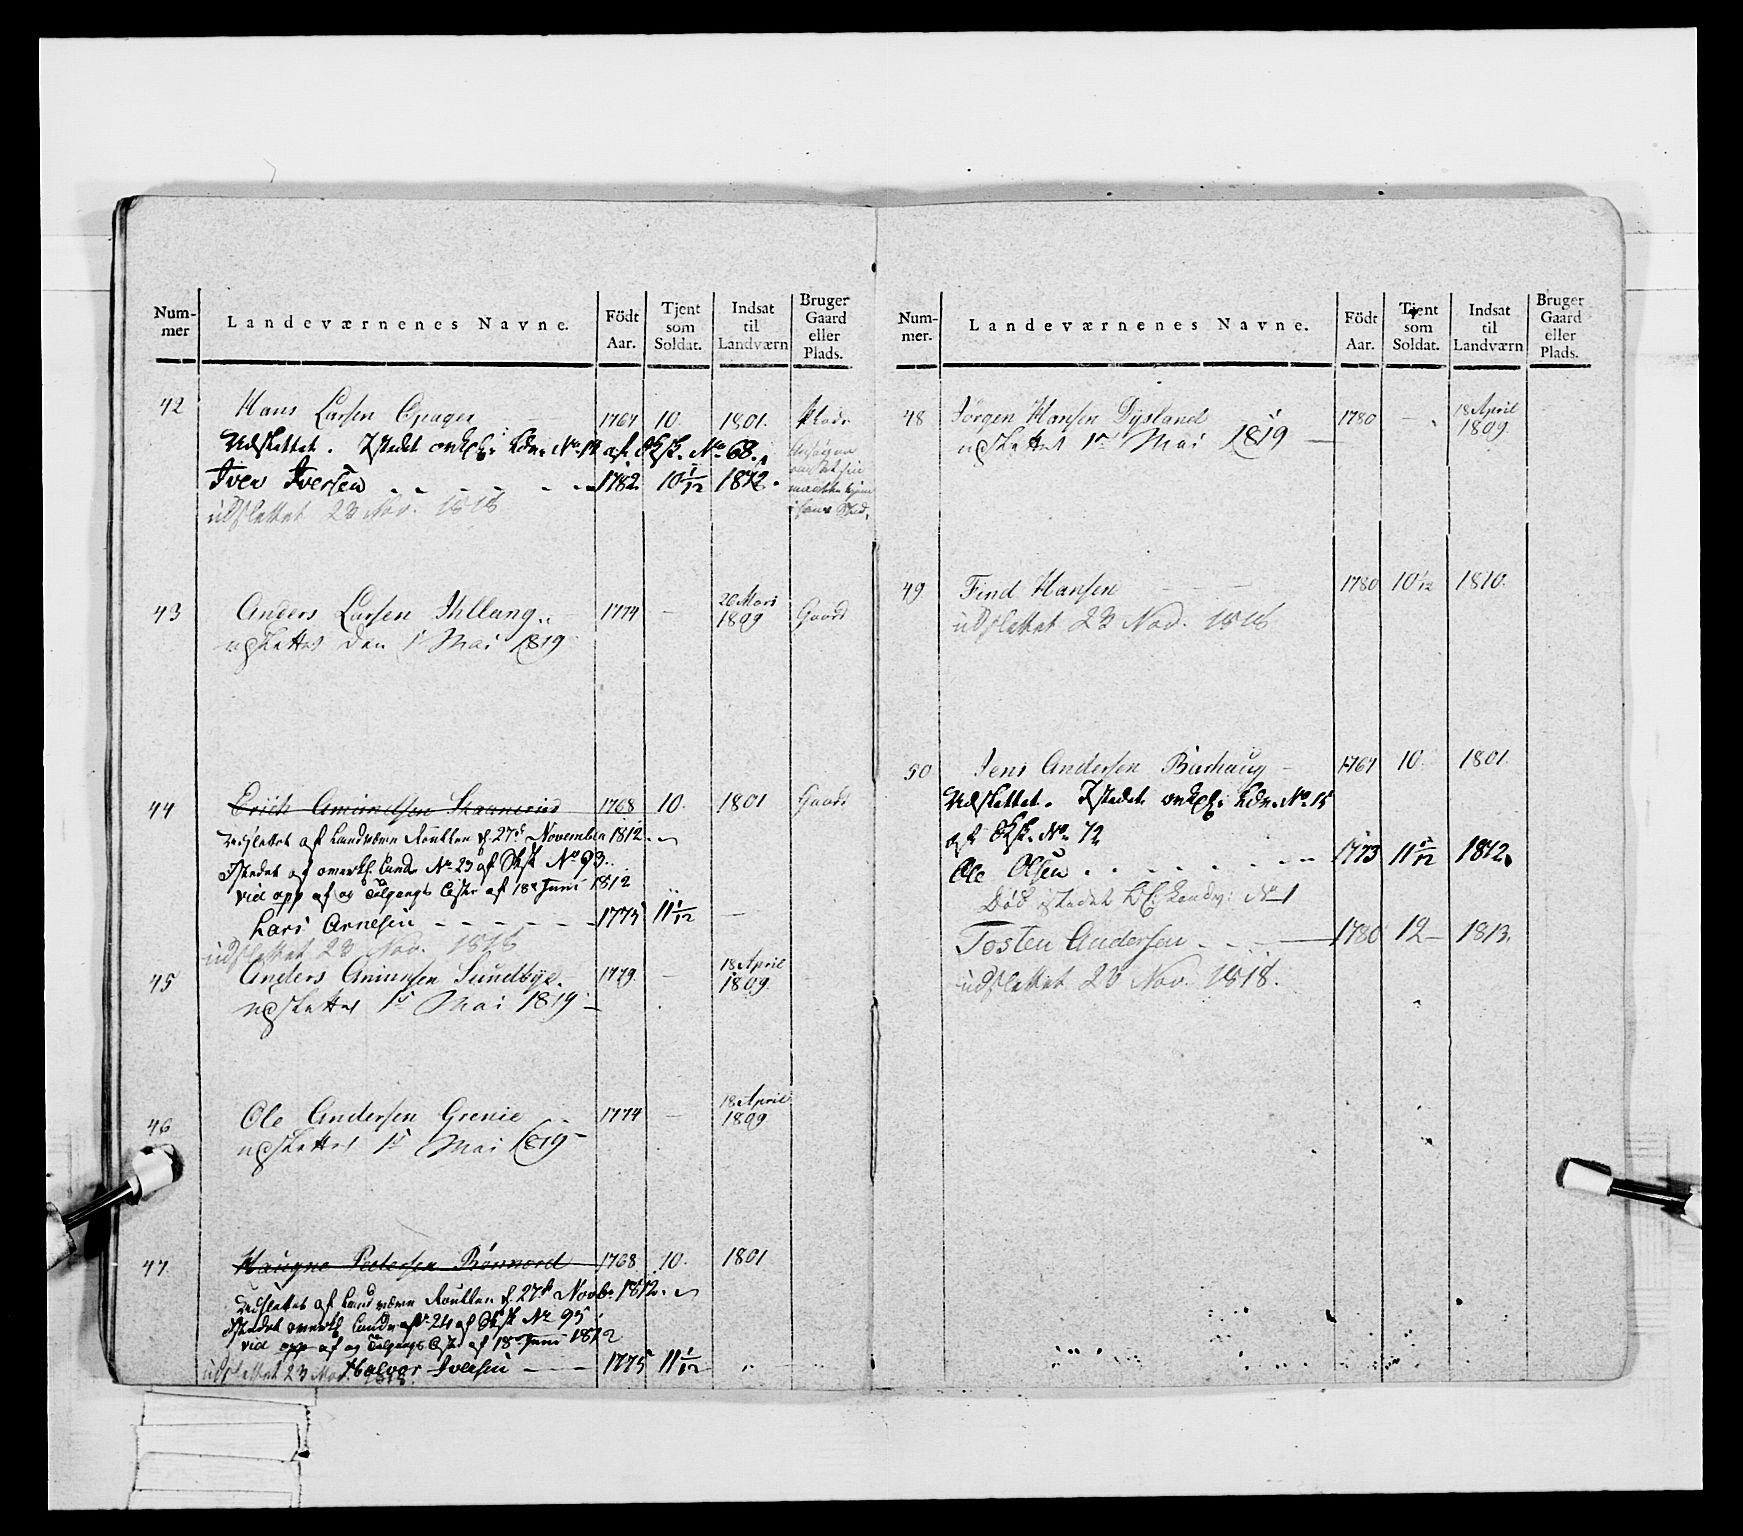 Num-
mer
Landeværnenes Navne.
Födt
Aar.
Tjent
som
Soldat.
Indsat
til
Landværn
Bruger
Gaard
eller
Plads.
42 Hans Larsen Opager 1767 10. 1801. Plads
Udslettet. Istedet No. 14 af No. 68.
Iver Iversen 1782. 10 1/12 1812.
udslettet 23 Nov. 1818
43 Anders Larsen 1774 — 26 Mars 1809 Gaard
udslettet den 1 Mai 1819
44 Erich Amundsen 1768 10. 1801 Gaard
Udslettet af Landværns Roullen d. 27de November 1812.
Istedet af Landv No 23 af No 93.
vid opp af og Tilgangs Liste af 18de Juni 1812
Lars Arnesen 1775 11 1/12 —
udslettet 23 Nov. 1818
45 Anders Amunsen Sundbye 1779. — 18 April 1809.
udslettet 1 Mai 1819 —
46 Ole Andersen Grenie 1774 — 18 April 1809
udslettet 1 Mai 1819 —
47 Haugne Pedersen 1768. 10. 1801
Udslettet af Landværns Roullen d. 27de Novbr 1812.
Istedet 24 af No 95
vid opp af og Tilgangs Liste af 18de Juni 1812
Halvor Iversen — 1775 11 1/12
udslettet 23 Nov. 1818.
Num-
mer.
Landeværnenes Navne.
Födt
Aar.
Tjent
som
Soldat.
Indsat
til
Landværn
Bruger
Gaard
eller
Plads.
48 Jörgen Hansen Dysland 1780 — 18 April 1809.
udslettet 1 Mai 1819 —
49 Find Hansen 1780 10 1/12 1810.
udslettet 23 Nov. 1818
50 Jens Andersen Barhaug — 1767 10. 1801.
Udslettet. Istedet No. 15
af No. 72
Ole Olsen 1773 11 1/12 1812.
Död istedet No 1
Tosten Andersen 1780 12 — 1813.
udslettet 23 Nov. 1818.